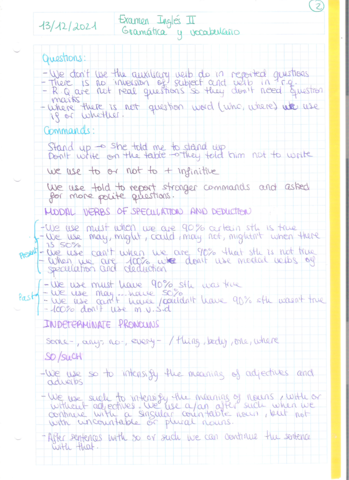 2
13/12/2021
Examen Inglés II
Gramática y vocabulario
Questions:
- We don't use the auxiliary verb do in reported questions
- There is no inversion of subject and verb in r.q.
- R Q are not real questions so they don't need question
marks
- Where there is not question word (who, where) we use
if or whether.
Commands:
Stand up → She told me to stand up
Don't write on the table → They told him not to write
We use to or not to + infinitive
We use told to report stronger commands and asked
for more polite questions.
MODAL VERBS OF SPECULATION AND DEDUCTION
- We use must when we are 90% certain sth is true
- We use may, might, could, may not, mightn't when there
is 50%
Present
- We use can't when we are 90% that sth is not true
- When we are 100% we don't use modal verbs of
speculation and deduction
Past
- We use must have 90% sth was true
- We use may... have 50%
- We use can't have / couldn't have 90% sth wasn't true
- 100% don't use m.v.s.d
INDETERMINATE PRONOUNS
Some-, any-, no-, every- / thing, body, one, where
SO/SUCH
- We use so to intensify the meaning of adjectives and
adverbs
- We use such to intensify the meaning of nouns, with or
without adjectives. We use a/an after such when we
continue with a singular countable noun, but not
with uncountable or plural nouns.
- After sentences with so or such we can continue the sentence
with that.